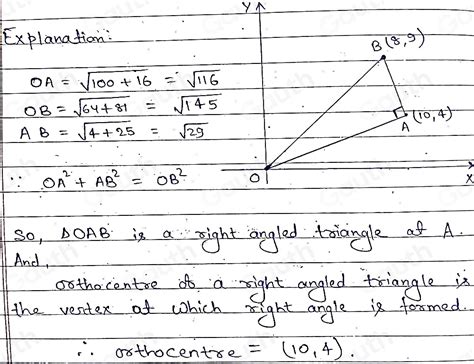 Y
Explanation:
B(8,9)
OA = √100+16 = √116
OB = √64+81 = √145
AB = √4+25 = √29
A (10,4)
∵ OA² + AB² = OB²
O
X
So, ΔOAB is a right angled triangle at A.
And,
orthocentre of a right angled triangle is
the vertex at which right angle is formed.
∴ orthocentre = (10,4).